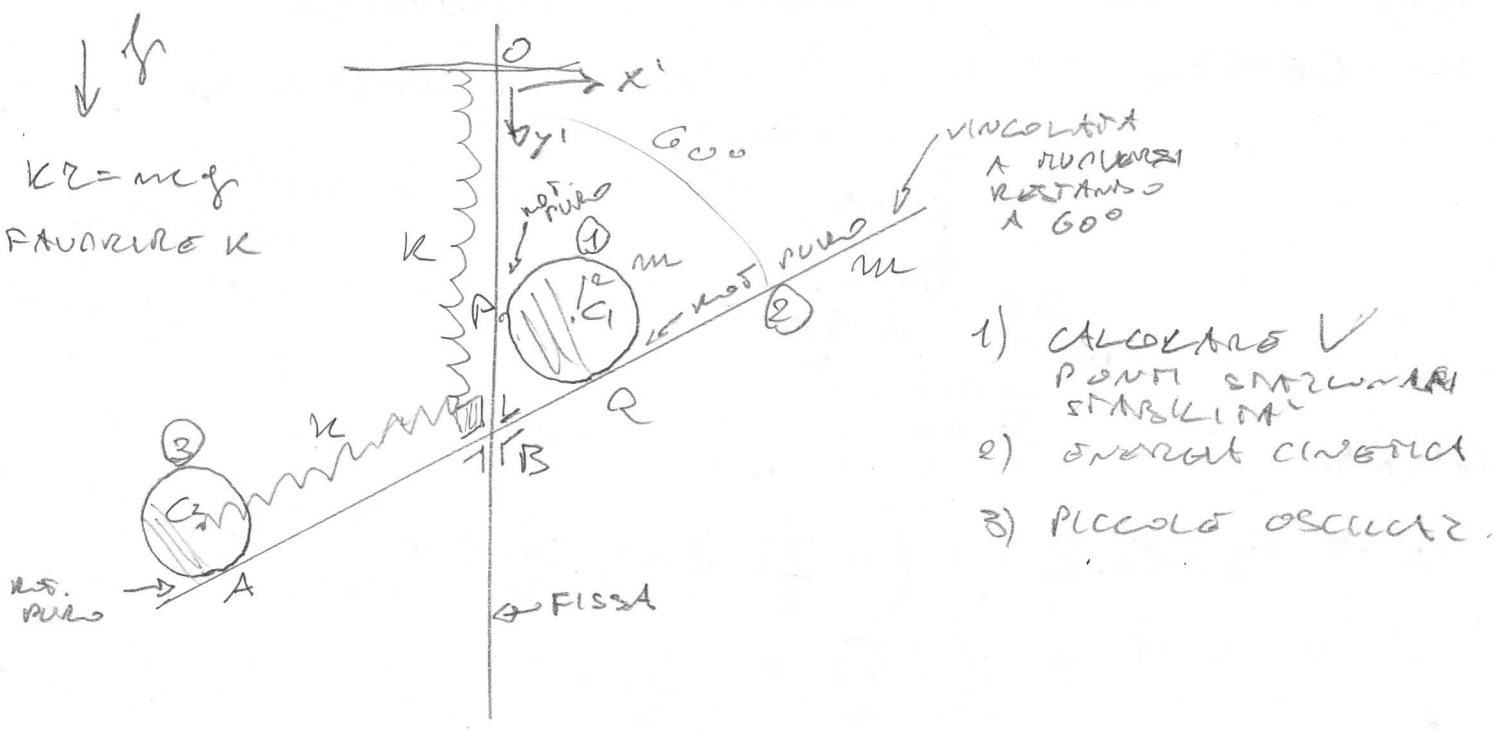 g
kr=mg
FAVORIRE K
O
x'
y'
60°
VINCOLATA
A MUOVERSI
RESTANDO
A 60°
ROT PURO
1
m
K
r
C1
P
ROT PURO
m
2
Q
B
k
3
C3
ROT.
PURO
A
FISSA
1) CALCOLARE V
PUNTI STAZIONARI
STABILITA'
2) ENERGIA CINETICA
3) PICCOLE OSCILLAZ.